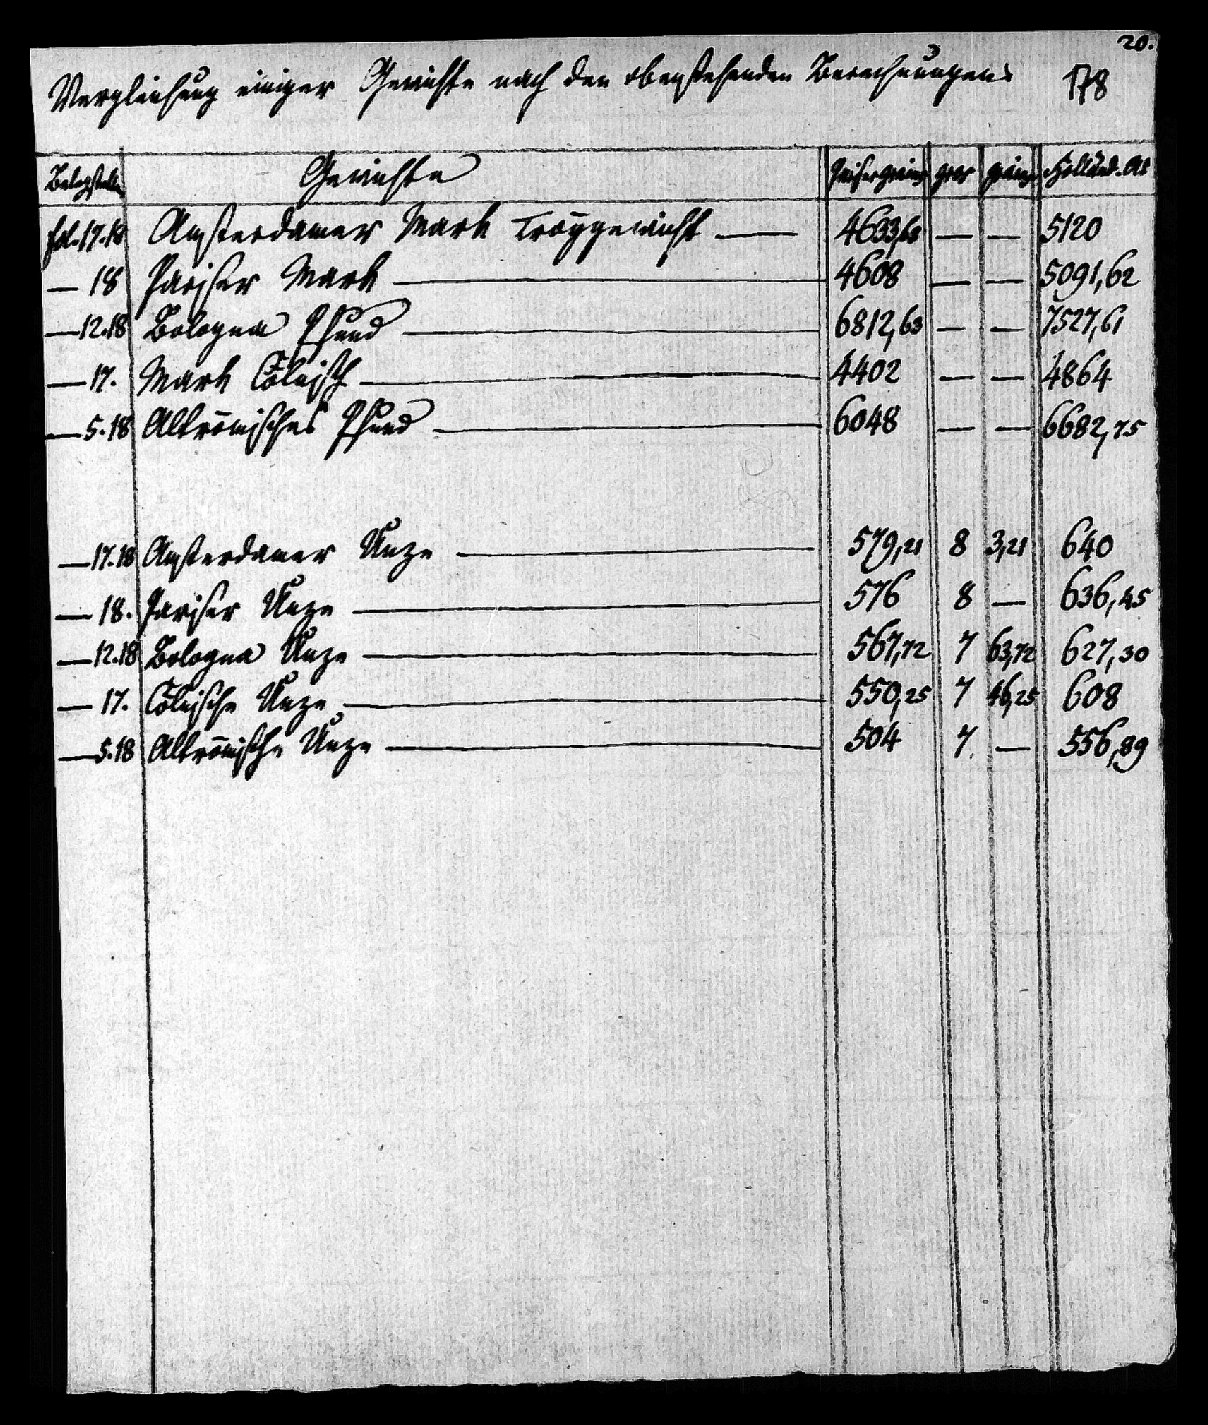 20.
Vergleichung einiger Gewichte nach den obenstehenden Berechnungen
178
Belegstelle Gewichte Pariser grains gros grains Holländ. As
fol. 17.18 Amsterdamer Mark Troÿgewicht — 4633,68 — — 5120
— 18 Pariser Mark — 4608 — — 5091,62
— 12.18 Bologna Pfund — 6812,63 — — 7527,61
— 17. Mark Cölnisch — 4402 — — 4864
— 5.18 Altrömisches Pfund — 6048 — — 6682,75
— 17.18 Amsterdamer Unze — 579,21 8 3,21 640
— 18. Pariser Unze — 576 8 — 636,45
— 12.18 Bologna Unze — 567,72 7 63,72 627,30
— 17. Cölnische Unze — 550,25 7 46,25 608
— 5.18 Altrömische Unze — 504 7. — 556,89